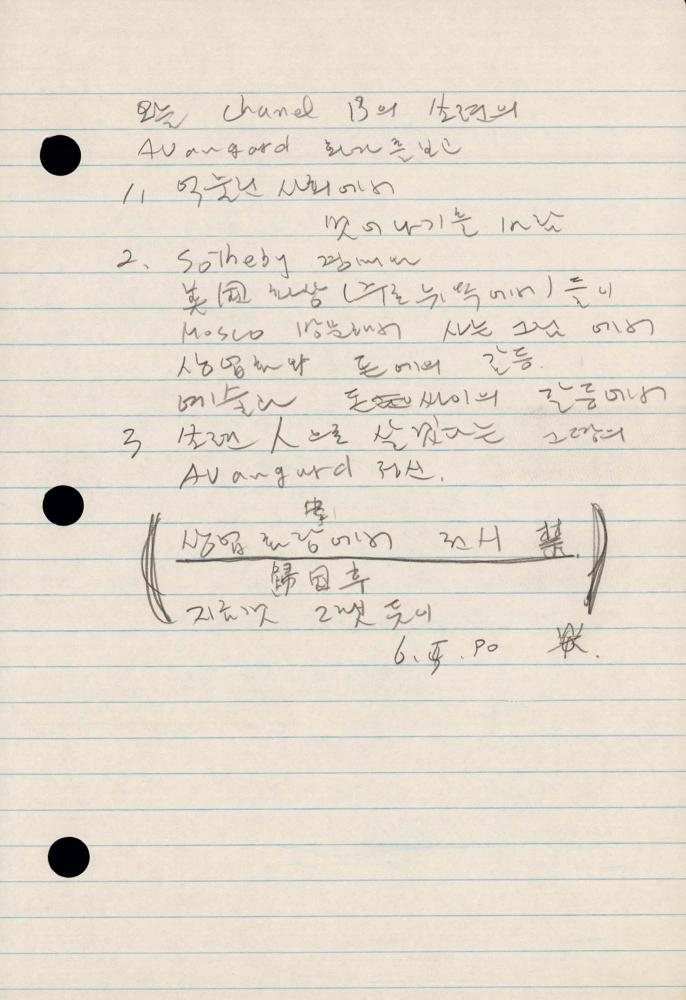 오늘 Chanel 13의 소련의
AVangard 화가를 보고
1. 억눌린 사회에서
벗어나기를
2. Sotheby 경매
美国 화상 (주로 뉴욕에서) 들이
Mosco 방문해서 사는 그림 에서
상업화와 돈에의 갈등.
예술과 돈 싸이의 갈등에서
3 소련人으로 살겠다는 그들의
AVangard 정신.
상업화랑에서 전시 禁.
歸国후
지금것 그랬듯이
6. .90